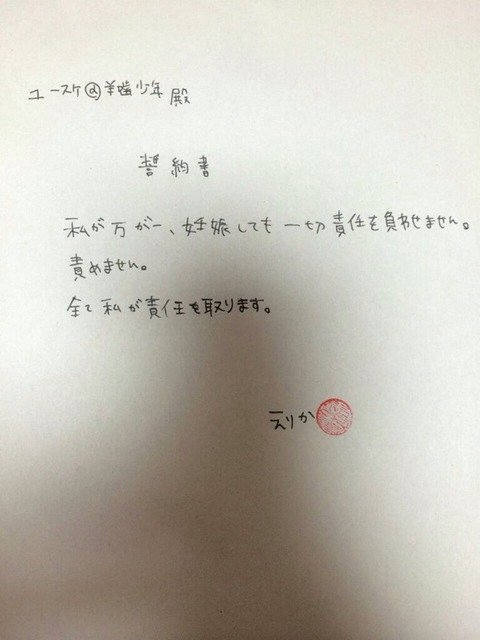 ユースケ@羊飼少年 殿
誓約書
私が万が一、妊娠しても一切責任を負わせません。
責めません。
全て私が責任を取ります。
えりか